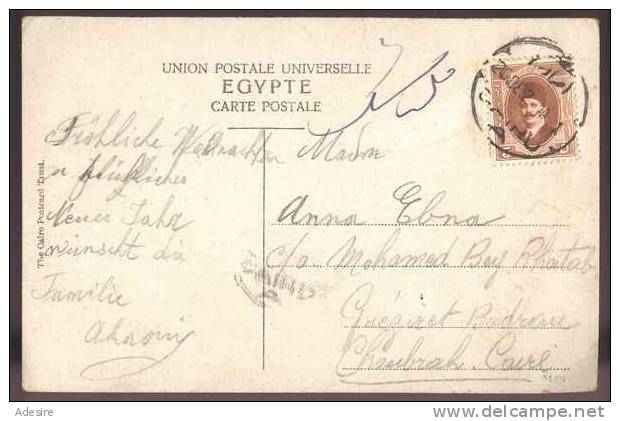 UNION POSTALE UNIVERSELLE
EGYPTE
CARTE POSTALE
The Cairo Postcard Trust.
Fröhliche Weihnachten
u glückliches
Neues Jahr
wünscht die
Familie
Madm
Anna Ebna
c/o Mohamed Bey Khatab
Choubrah. Cairé
Adesire
www.delcampe.net